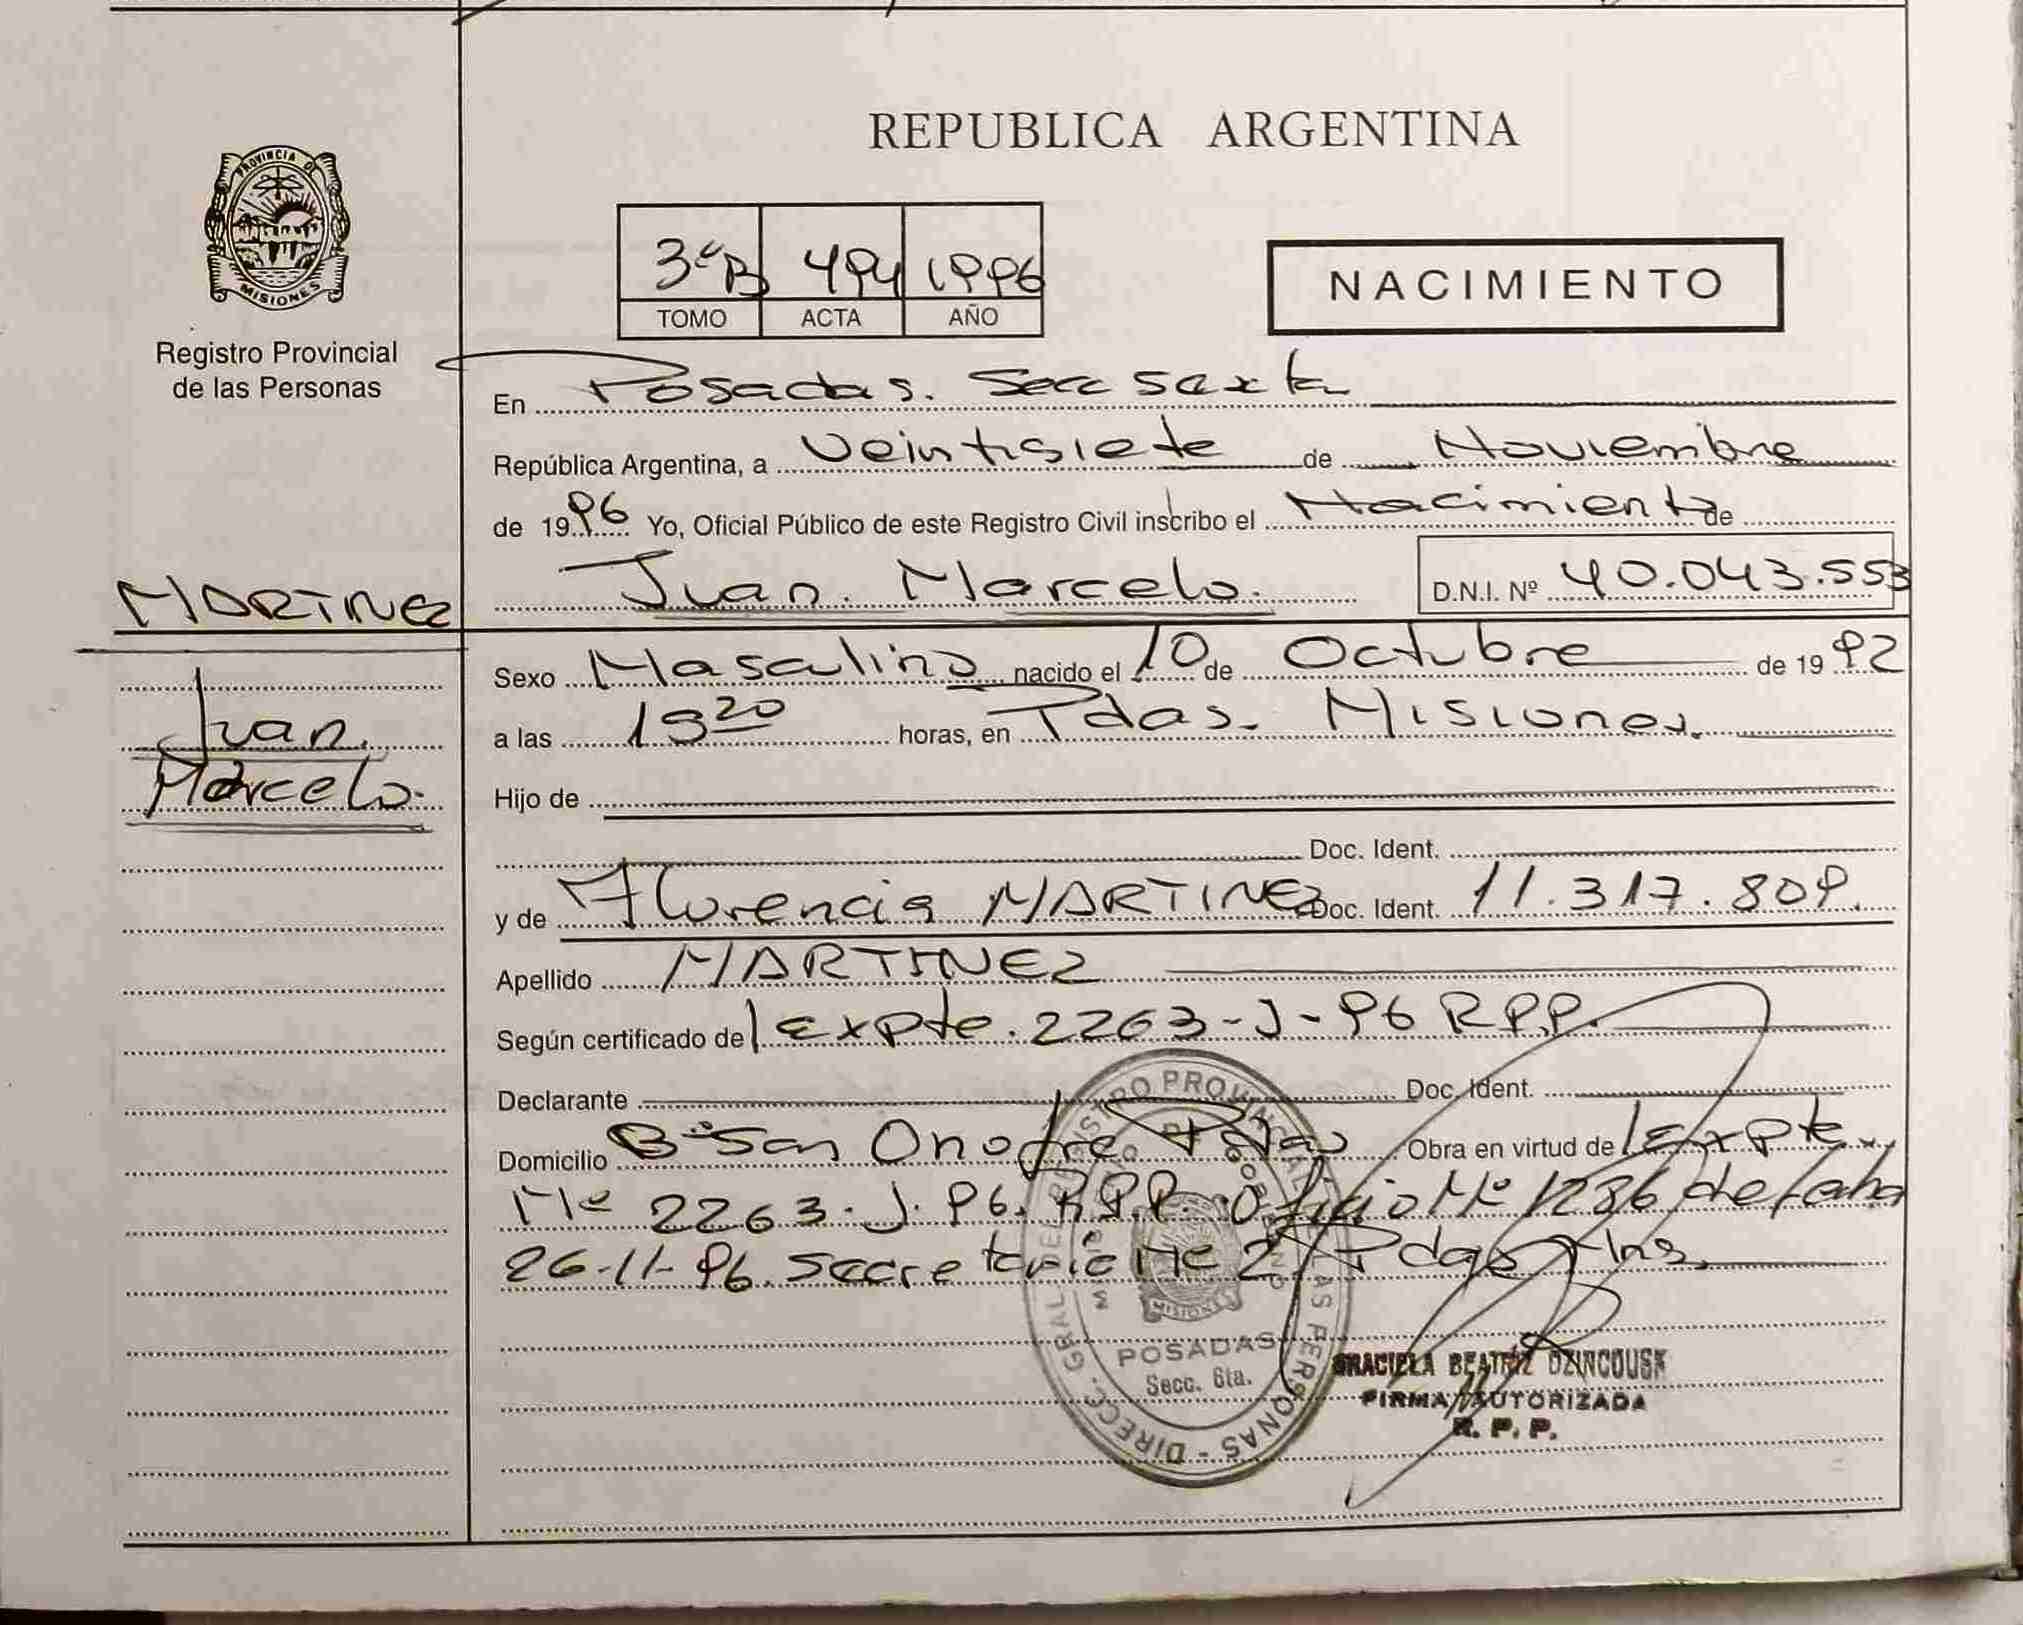 REPUBLICA ARGENTINA
PROVINCIA DE
MISIONES
Registro Provincial
de las Personas
3ºB 494 1996
TOMO ACTA AÑO
NACIMIENTO
En Posadas. Secc sexta
República Argentina, a veintisiete de Noviembre
de 1996 Yo, Oficial Público de este Registro Civil inscribo el Nacimiento de
Juan Marcelo. D.N.I. Nº 40.043.553
MARTINEZ
Juan
Marcelo.
Sexo Masculino nacido el 10 de Octubre de 1992
a las 19 20 horas, en Pdas. Misiones.
Hijo de
Doc. Ident.
y de Florencia MARTINEZ Doc. Ident. 11.317.809.
Apellido MARTINEZ
Según certificado de Expte. 2263-J-96 RPP.
Declarante Doc. Ident.
Domicilio Bº San Onofre Pdas Obra en virtud de Expte
Nº 2263-J-96. R.P.P. Oficio Nº 1236 de fecha
26-11-96. Secretaria Nº 2 Pdas Mns.
DIRECC. GRAL. DEL REGISTRO PROVINCIAL DE LAS PERSONAS
MISIONES
POSADAS
Secc. 6ta.
GRACIELA BEATRIZ DZINCOUSK
FIRMA AUTORIZADA
R. P. P.